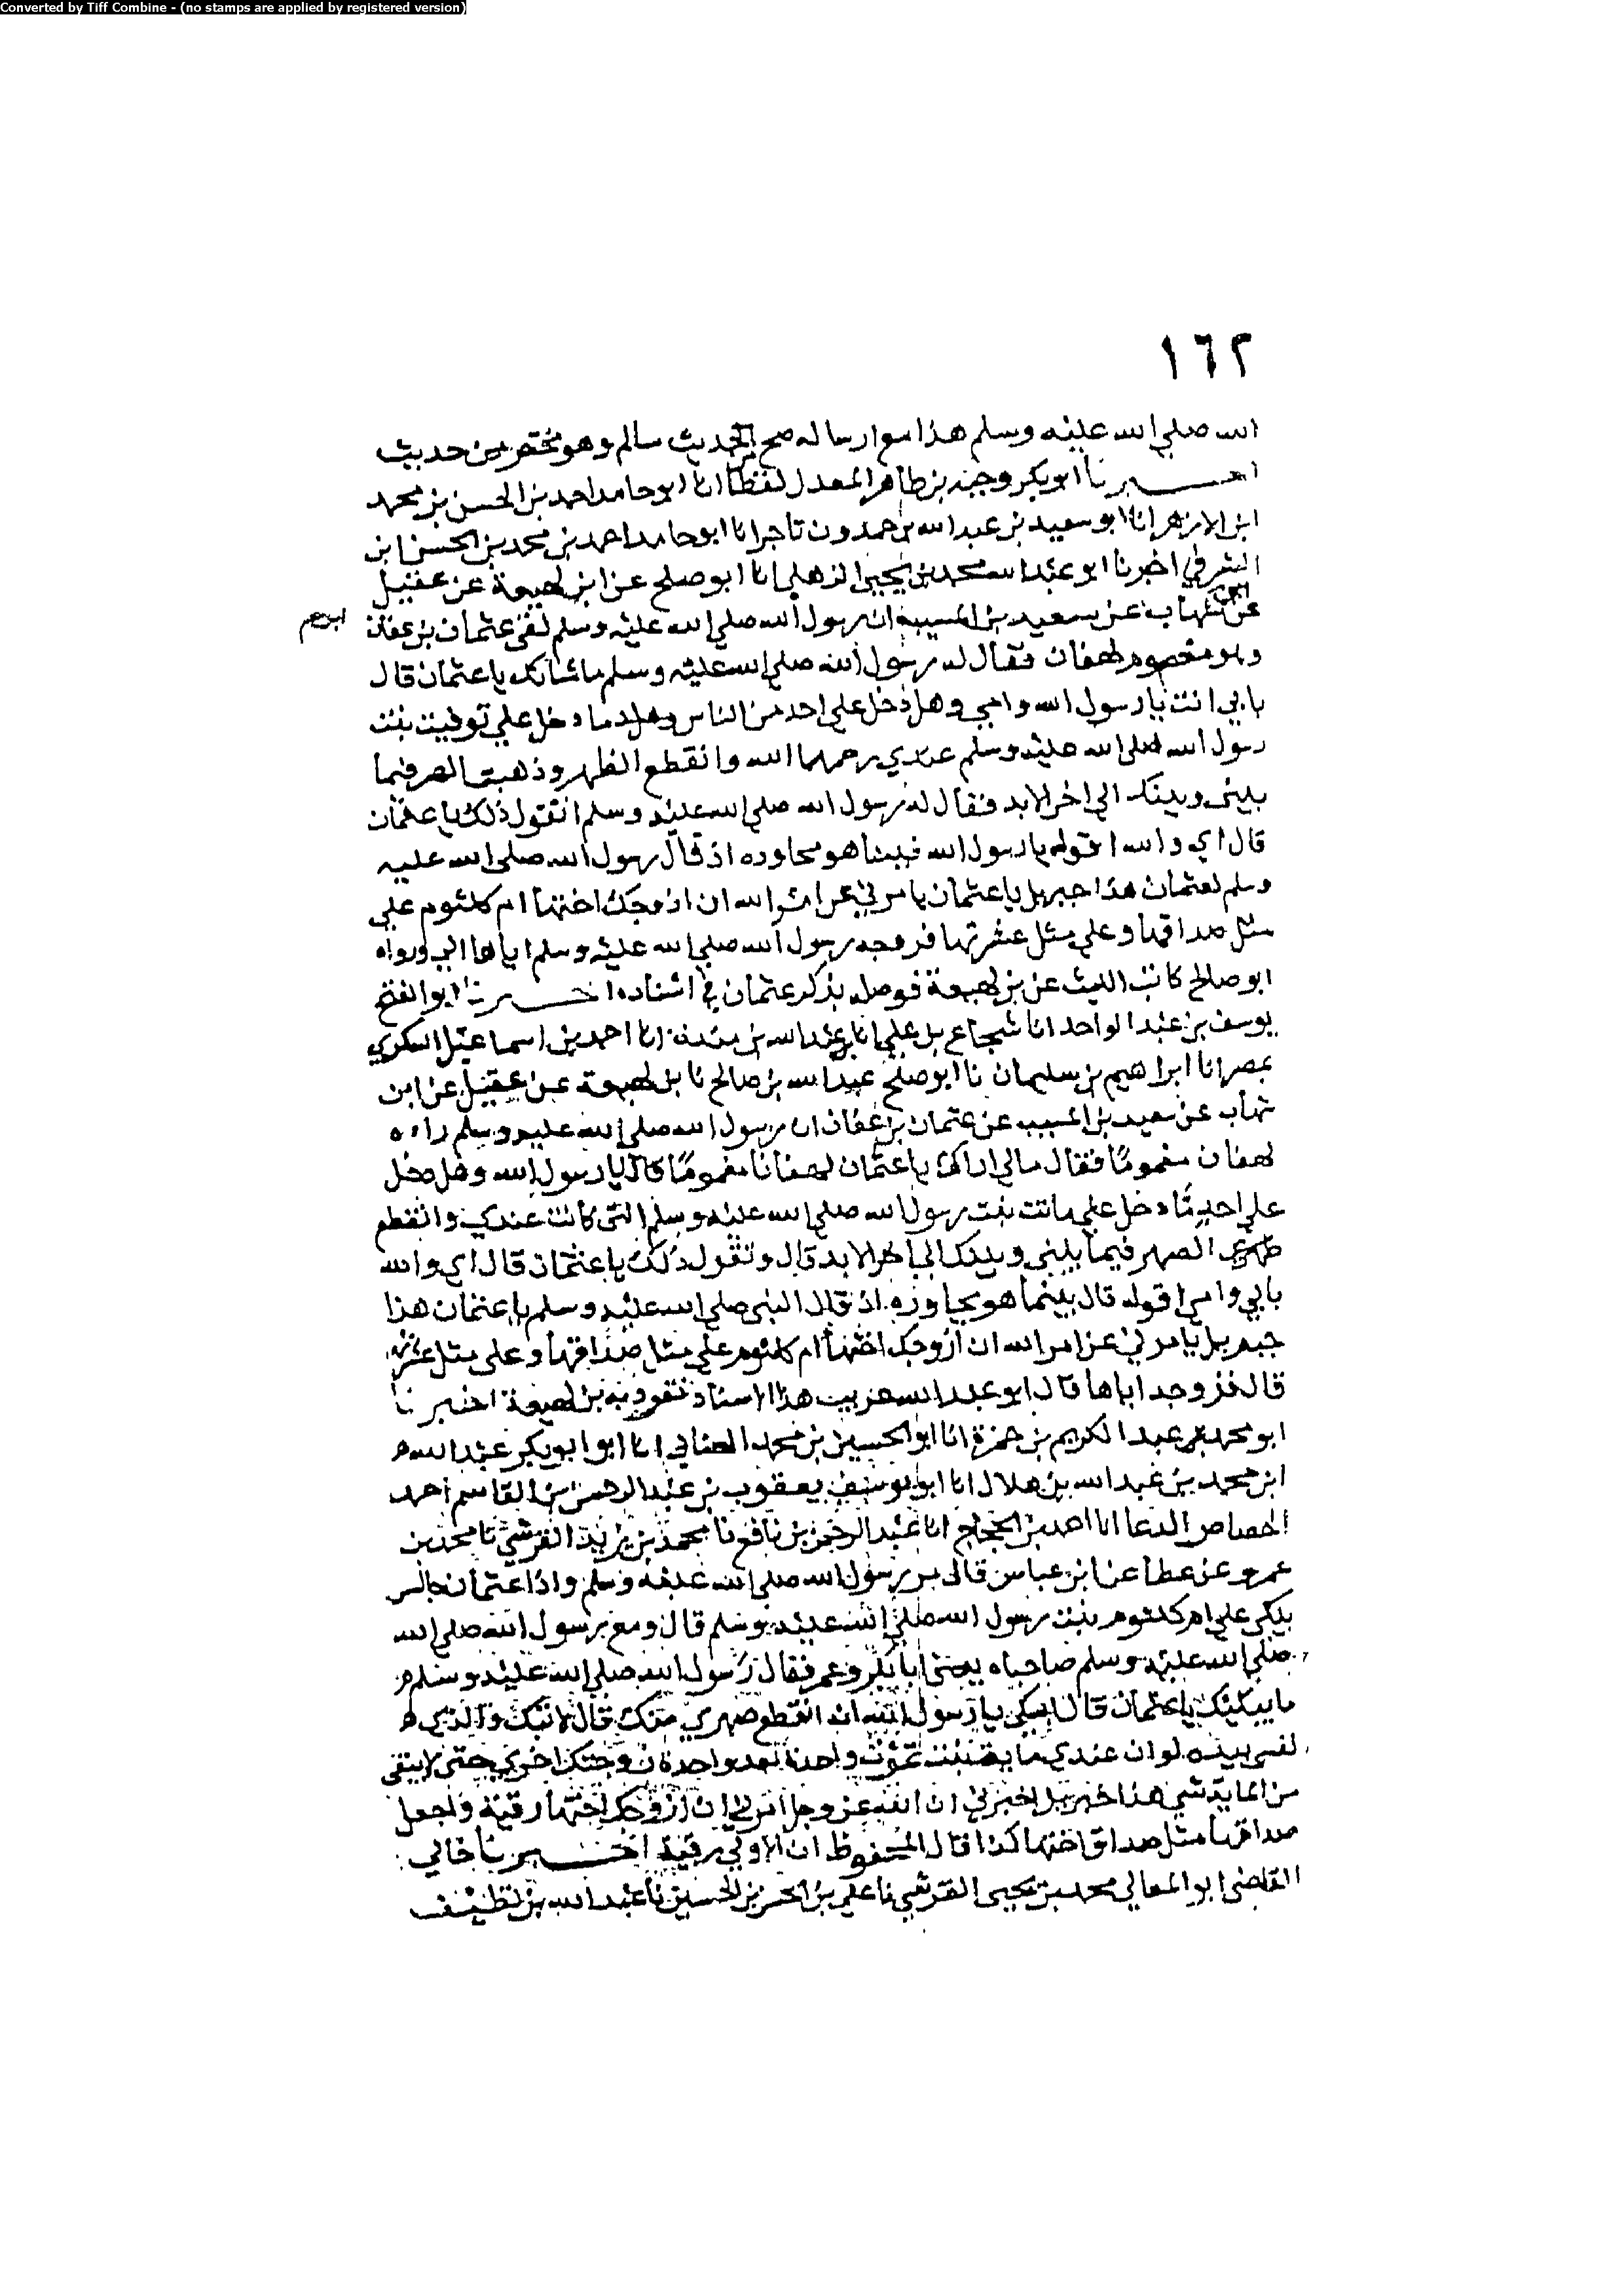 Converted by Tiff Combine - (no stamps are applied by registered version)
١٦٢
الله صلى الله عليه وسلم هذا مع ارساله صح الحديث سالم وهو مختصر من حديث
اخبرنا ابو بكر وجيه بن طاهر المعدل لفظا انا ابو حامد احمد بن الحسن بن محمد
ابن الازهر انا ابو سعيد بن عبد الله بن حمدون تاجر انا ابو حامد احمد بن محمد بن الحسن ابن
الشرقي اخبرنا ابو عبد الله محمد بن يحيى الذهلي انا ابو صلح عن ابن لهيعة عن عقيل
عن شهاب عن سعيد بن المسيب ان رسول الله صلى الله عليه وسلم لقى عثمان بن عفان
وهو مغموم لهفان فقال له رسول الله صلى الله عليه وسلم ما شانك يا عثمان قال
بابي انت يا رسول الله وامي وهل دخل على احد من الناس ما دخل علي توفيت بنت
رسول الله صلى الله عليه وسلم عندي رحمها الله وانقطع الظهر وذهبت الصهر فيما
بيني وبينك الى اخر الابد فقال له رسول الله صلى الله عليه وسلم اتقول ذلك يا عثمان
قال اي والله اقوله يا رسول الله فبينا هو محاوره اذ قال رسول الله صلى الله عليه
وسلم لعثمان هذا جبريل يا عثمان يامرني عن امر الله ان ازوجك اختها ام كلثوم على
مثل صداقها وعلى مثل عشرتها فزوجه رسول الله صلى الله عليه وسلم اياها ورواه
ابو صالح كاتب الليث عن بن لهيعة فوصله بذكر عثمان في اسناده اخبرنا ابو الفتح
يوسف بن عبد الواحد انا شجاع بن علي انا ابو عبد الله بن مندة انا احمد بن اسماعيل السكري
بمصر انا ابراهيم بن سليمان نا ابو صلح عبد الله بن صالح نا بن لهيعة عن عقيل عن ابن
شهاب عن سعيد بن المسيب عن عثمان بن عفان ان رسول الله صلى الله عليه وسلم راه
لهفان مغموما فقال مالي اراك يا عثمان لهفانا مغموما قال يا رسول الله وهل دخل
على احد ما دخل علي ماتت بنت رسول الله صلى الله عليه وسلم التي كانت عندي وانقطع
الصهر فيما بيني وبينك الى اخر الابد قال وتقول ذلك يا عثمان قال اي والله
بابي وامي اقوله قال بينما هو يحاوره اذ قال النبي صلى الله عليه وسلم يا عثمان هذا
جبريل يامرني عن امر الله ان ازوجك اختها ام كلثوم على مثل صداقها وعلى مثل عشرتها
قال فزوجه اياها قال ابو عبد الله غريب هذا الاسناد تفرد به بن لهيعة اخبرنا
ابو محمد عبد الكريم بن حمزة انا ابو الحسين بن محمد انا ابو ابو بكر عبد الله
ابن محمد بن عبد الله بن هلال انا ابو يوسف يعقوب بن عبد الرحمن بن القاسم احمد
الحصاص الدعا انا احمد بن الحجاج انا عبد الرحمن بن نافع نا محمد بن يزيد القرشي نا محمد بن
عمرو عن عطا عن ابن عباس قال مر رسول الله صلى الله عليه وسلم واذا عثمان جالس
يبكي على ام كلثوم بنت رسول الله صلى الله عليه وسلم قال ومع رسول الله صلى الله
صلى الله عليه وسلم صاحباه يعني ابا بكر وعمر فقال رسول الله صلى الله عليه وسلم
ما يبكيك يا عثمان قال ابكي يا رسول الله ان انقطع صهري منك قال لا تبك والذي
نفسي بيده لو ان عندي ماية بنت تموت واحدة بعد واحدة زوجتك اخرى حتى لا يبقى
من الماية شي هذا جبريل اخبرني ان الله عز وجل امرني ان ازوجك اختها رقية واجعل
صداقها مثل صداق اختها كذا قال المحفوظ ان الاولى رقية اخبرنا خالي
القاضي ابو المعالي محمد بن يحيى القرشي نا علي بن الحسن بن الحسين نا عبد الله بن نظيف